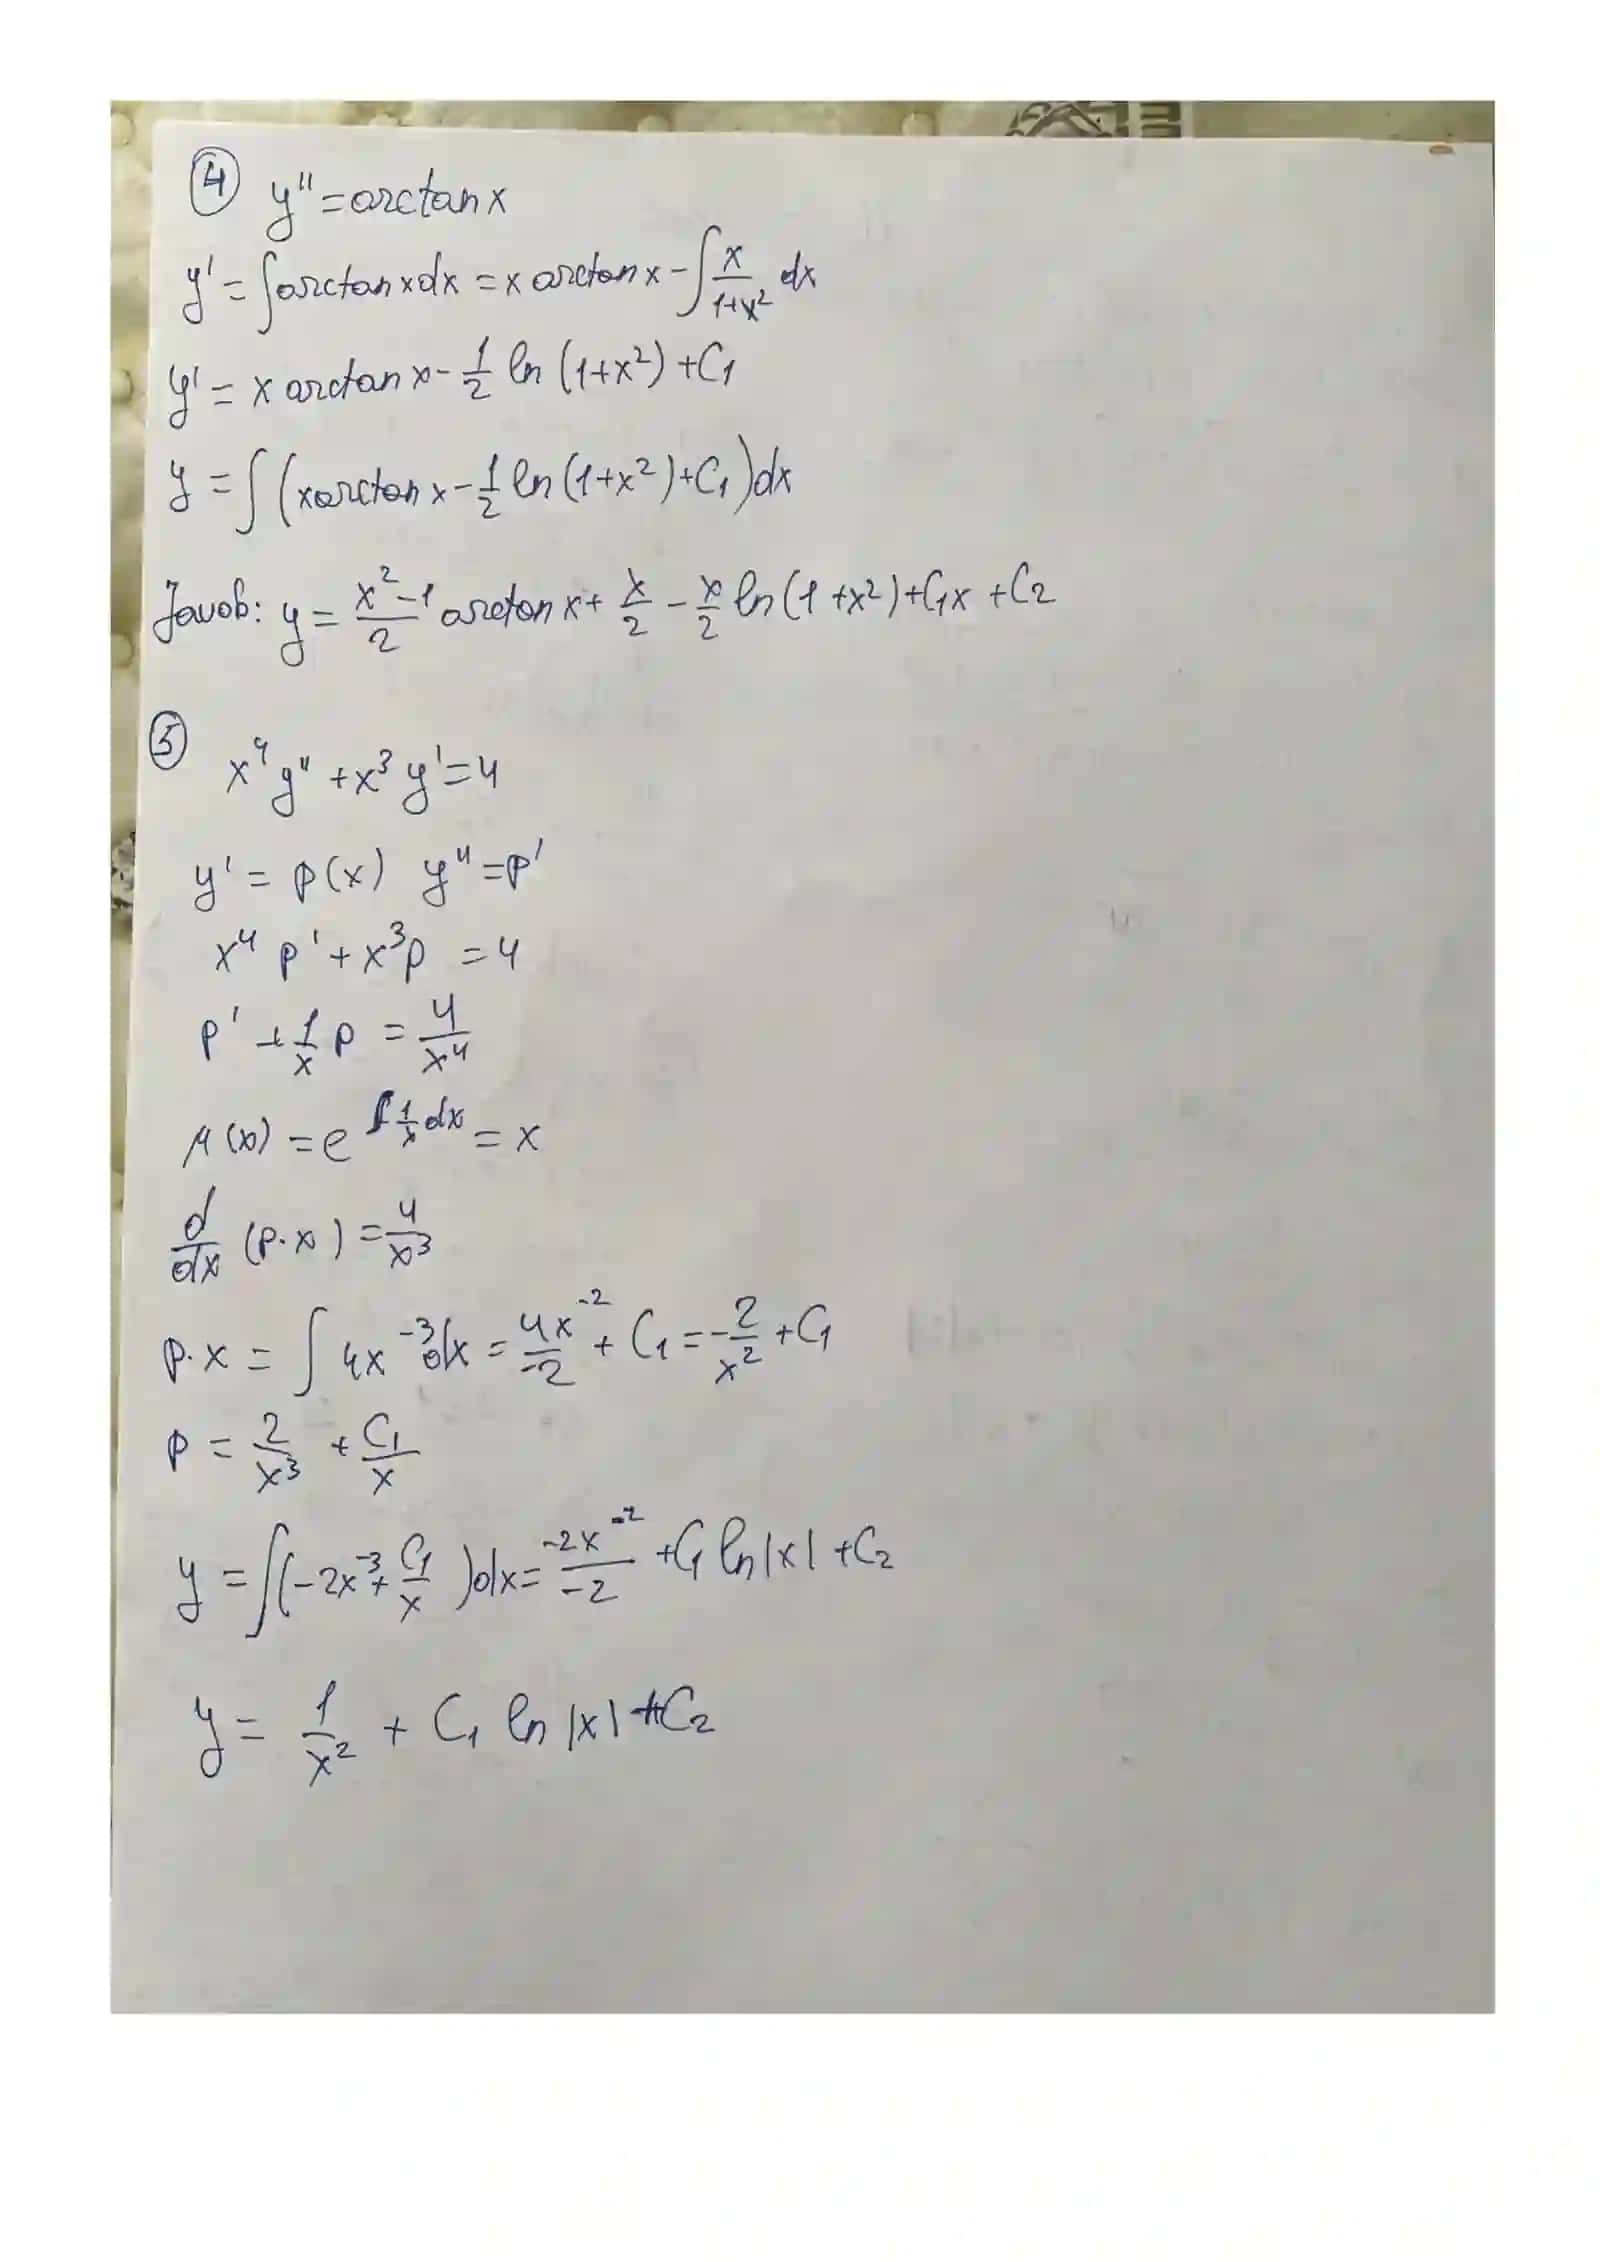 4 y'' = arctan x
y' = ∫ arctan x dx = x arctan x - ∫ x/(1+x²) dx
y' = x arctan x - 1/2 ln (1+x²) + C₁
y = ∫ (x arctan x - 1/2 ln (1+x²) + C₁) dx
Javob: y = (x²-1)/2 arctan x + x/2 - x/2 ln (1+x²) + C₁x + C₂
5
x⁴ y'' + x³ y' = 4
y' = p(x) y'' = p'
x⁴ p' + x³ p = 4
p' + 1/x p = 4/x⁴
μ(x) = e^(∫ 1/x dx) = x
d/dx (p·x) = 4/x³
p·x = ∫ 4x⁻³ dx = 4x⁻²/-2 + C₁ = -2/x² + C₁
p = 2/x³ + C₁/x
y = ∫ (-2x⁻³ + C₁/x) dx = -2x⁻²/-2 + C₁ ln|x| + C₂
y = 1/x² + C₁ ln |x| + C₂